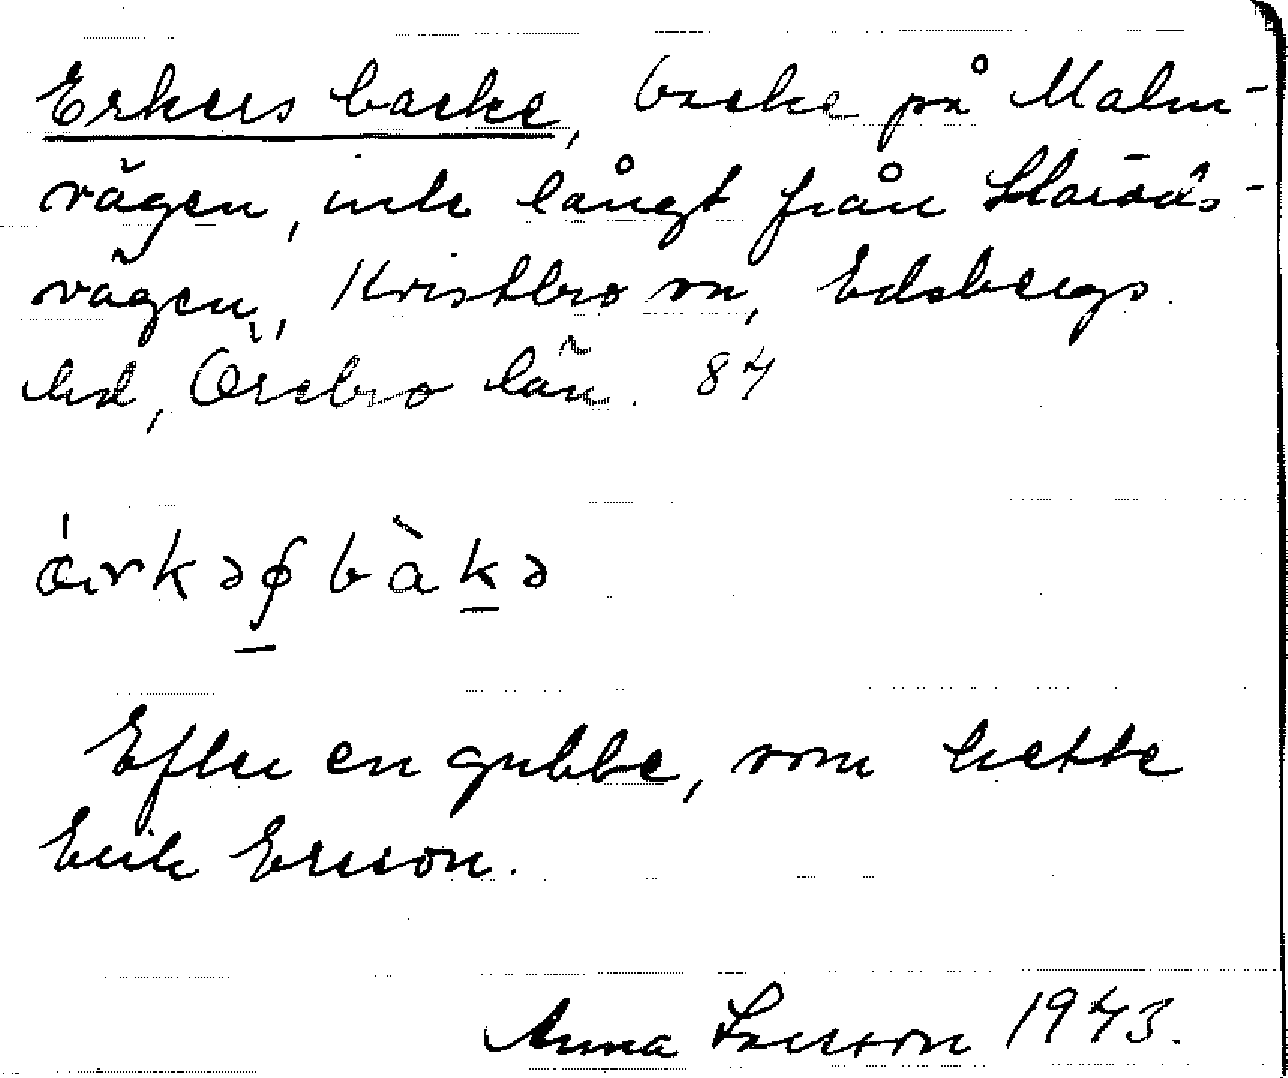 Erkers backe, backe på Malm-
vägen, inte långt från
vägen, Kvistbro sn, Edsbergs
hd, Örebro län. 84
bàkə
Efter en gubbe, som hette
Erik Ersson.
Anna Larsson 1943.